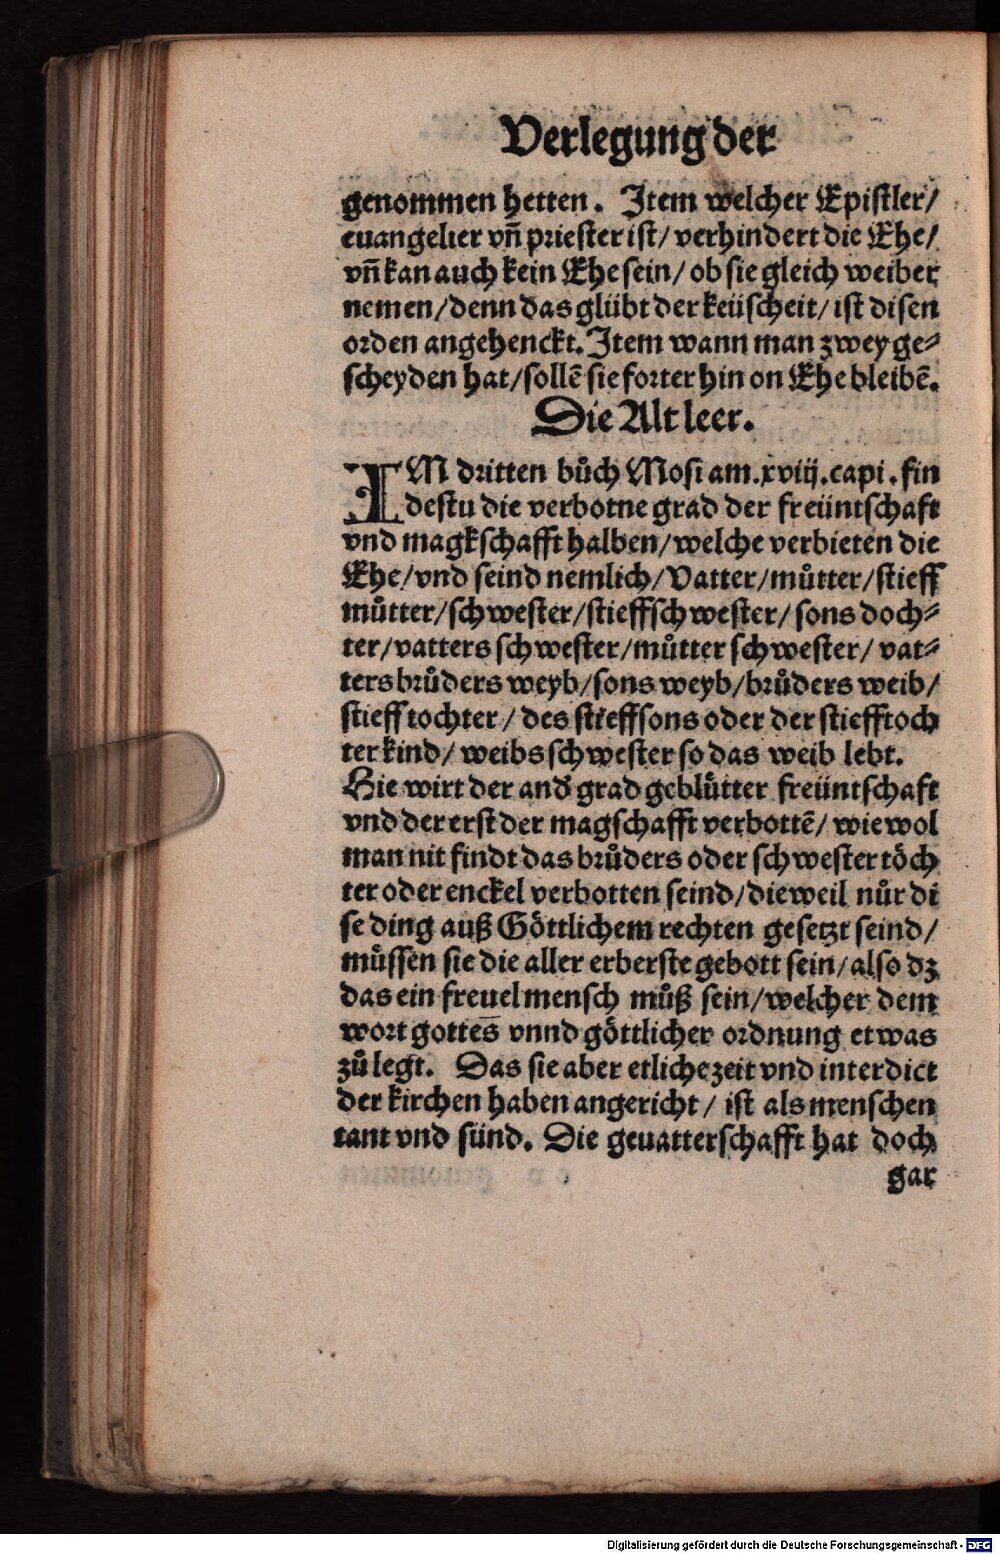 Verlegung der
genommen hetten. Item welcher Epistler/
euangelier vñ priester ist/ verhindert die Ehe/
vñ kan auch kein Ehe sein/ ob sie gleich weiber
nemen/ denn das glübt der keüscheit/ ist disen
orden angehenckt. Item wann man zwey ge⸗
scheyden hat/ sollẽ sie forter hin on Ehe bleibẽ.
Die Alt leer.
IM dritten bůch Mosi am. xviij. capi. fin
destu die verbotne grad der freüntschaft
vnd magkschafft halben/ welche verbieten die
Ehe/ vnd seind nemlich/ Vatter/ můtter/ stieff
můtter/ schwester/ stieffschwester/ sons doch⸗
ter/ vatters schwester/ můtter schwester/ vat⸗
ters brůders weyb/ sons weyb/ brůders weib/
stieff tochter/ des stieffsons oder der stiefftoch
ter kind/ weibs schwester so das weib lebt.
Hie wirt der and̓ grad geblütter freüntschaft
vnd der erst der magschafft verbottẽ/ wie wol
man nit findt das brůders oder schwester töch
ter oder enckel verbotten seind/ dieweil nůr di
se ding auß Göttlichem rechten gesetzt seind/
můssen sie die aller erberste gebott sein/ also dz
das ein freuel mensch můß sein/ welcher dem
wort gottes vnnd göttlicher ordnung etwas
zů legt. Das sie aber etliche zeit vnd interdict
der kirchen haben angericht/ ist als menschen
tant vnd sünd. Die geuatterschafft hat doch
gar
Digitalisierung gefördert durch die Deutsche Forschungsgemeinschaft - DFG